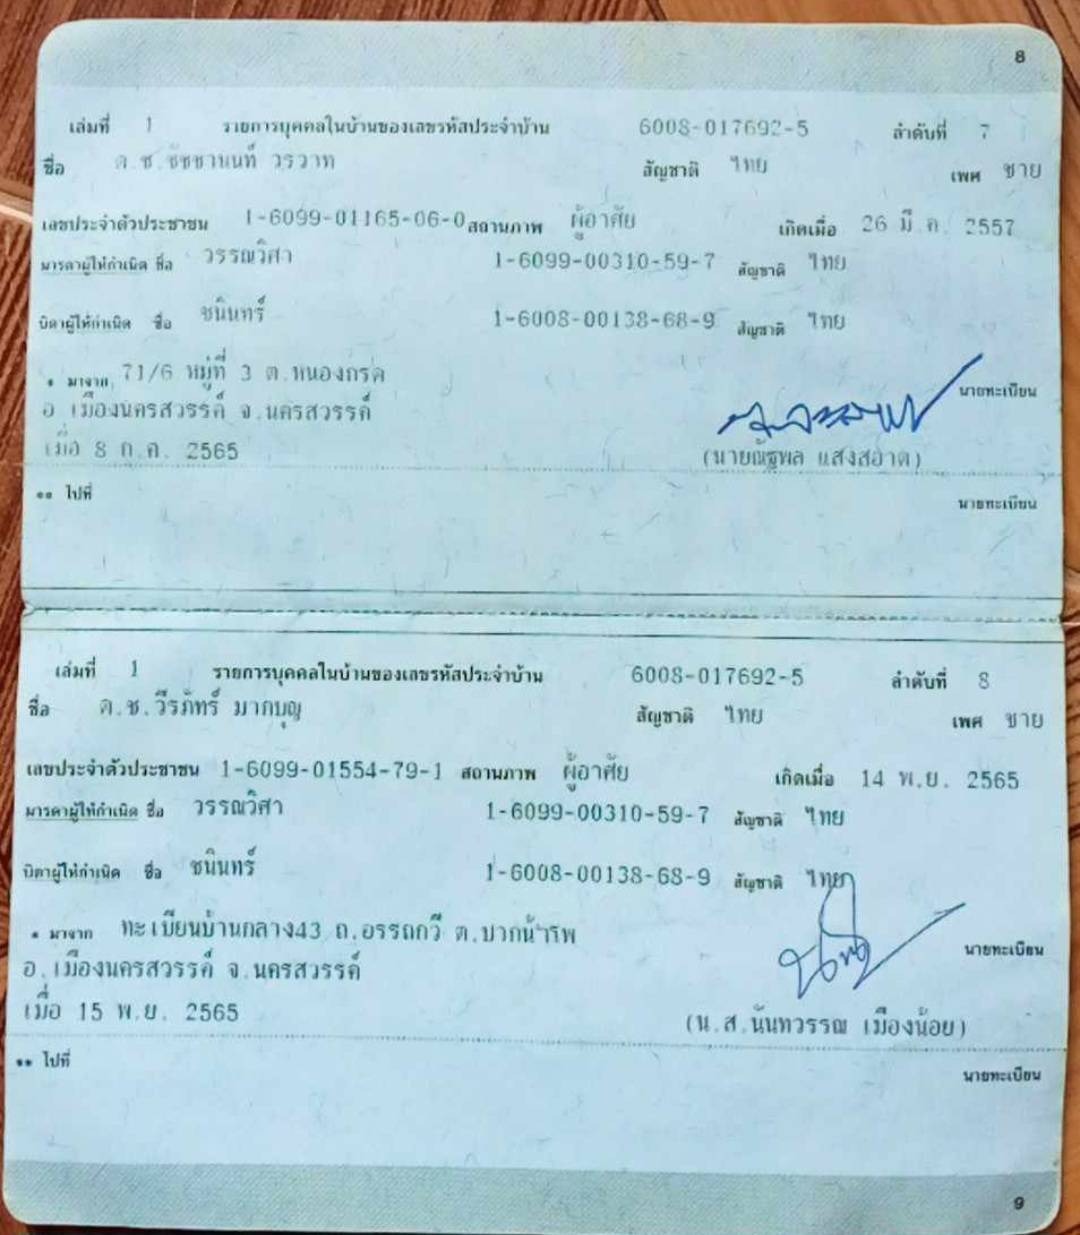 8
เล่มที่ 1 รายการบุคคลในบ้านของเลขรหัสประจำบ้าน 6008-017692-5 ลำดับที่ 7
ชื่อ ด.ช.ชัชชานนท์ วรวาท สัญชาติ ไทย เพศ ชาย
เลขประจำตัวประชาชน 1-6099-01165-06-0 สถานภาพ ผู้อาศัย เกิดเมื่อ 26 มี.ค. 2557
มารดาผู้ให้กำเนิด ชื่อ วรรณวิศา 1-6099-00310-59-7 สัญชาติ ไทย
บิดาผู้ให้กำเนิด ชื่อ ชนินทร์ 1-6008-00138-68-9 สัญชาติ ไทย
* มาจาก 71/6 หมู่ที่ 3 ต.หนองกรด
นายทะเบียน
อ.เมืองนครสวรรค์ จ.นครสวรรค์
เมื่อ 8 ก.ค. 2565 (นายณัฐพล แสงสอาด)
** ไปที่
นายทะเบียน
เล่มที่ 1 รายการบุคคลในบ้านของเลขรหัสประจำบ้าน 6008-017692-5 ลำดับที่ 8
ชื่อ ด.ช.วีรภัทร์ มากบุญ สัญชาติ ไทย เพศ ชาย
เลขประจำตัวประชาชน 1-6099-01554-79-1 สถานภาพ ผู้อาศัย เกิดเมื่อ 14 พ.ย. 2565
มารดาผู้ให้กำเนิด ชื่อ วรรณวิศา 1-6099-00310-59-7 สัญชาติ ไทย
บิดาผู้ให้กำเนิด ชื่อ ชนินทร์ 1-6008-00138-68-9 สัญชาติ ไทย
* มาจาก ทะเบียนบ้านกลาง43 ถ.อรรถกวี ต.ปากน้ำโพ
นายทะเบียน
อ.เมืองนครสวรรค์ จ.นครสวรรค์
เมื่อ 15 พ.ย. 2565 (น.ส.นันทวรรณ เมืองน้อย)
** ไปที่
นายทะเบียน
9